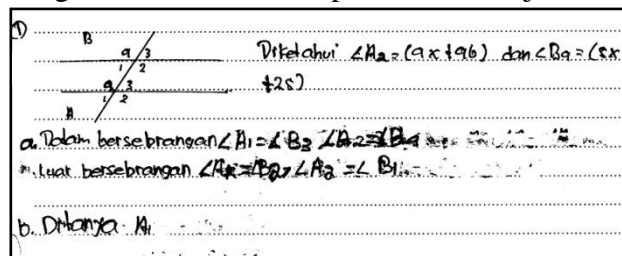 ①
B
9 3
1 2
9 3
1 2
A
Diketahui ∠A2 = (9x+96) dan ∠B9 = (5x
+25)
a. Dalam bersebrangan ∠A1 = ∠B3 ∠A2 = ∠B9
luar bersebrangan = ∠B2, ∠A3 = ∠B1
b. Ditanya A1